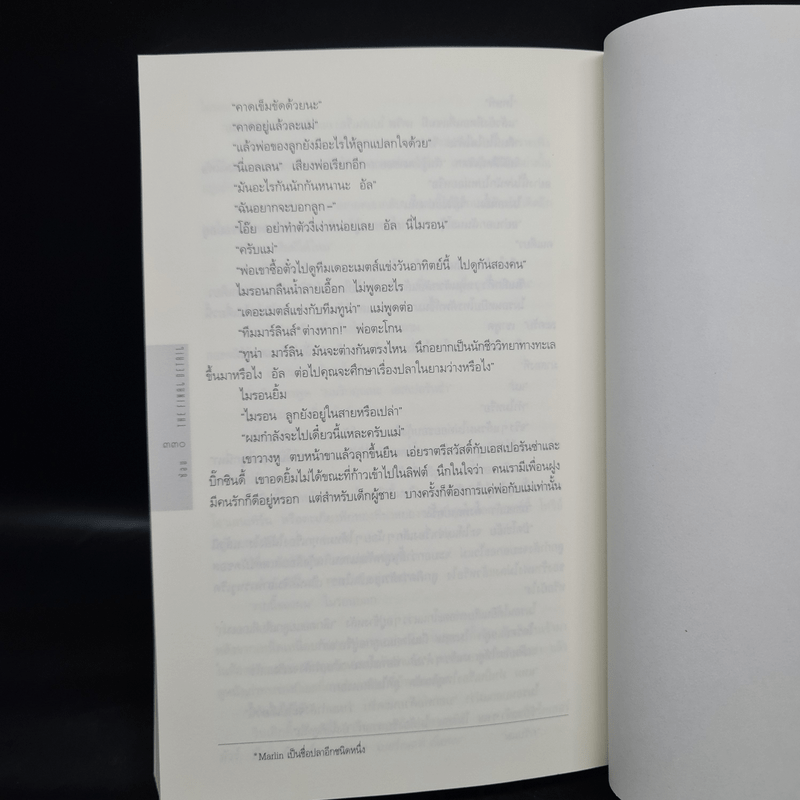 "คาดเข็มขัดด้วยนะ"
"คาดอยู่แล้วละแม่"
"แล้วพ่อของลูกยังมีอะไรให้ลูกแปลกใจด้วย"
"นี่เอลเลน" เสียงพ่อเรียกอีก
"มันอะไรกันนักกันหนานะ อัล"
"ฉันอยากจะบอกลูก–"
"โอ๊ย อย่าทำตัวงี่เง่าหน่อยเลย อัล นี่ไมรอน"
"ครับแม่"
"พ่อเขาซื้อตั๋วไปดูทีมเดอะเมตส์แข่งวันอาทิตย์นี้ ไปดูกันสองคน"
ไมรอนกลืนน้ำลายเอื๊อก ไม่พูดอะไร
"เดอะเมตส์แข่งกับทีมทูน่า" แม่พูดต่อ
"ทีมมาร์ลินส์*ต่างหาก!" พ่อตะโกน
"ทูน่า มาร์ลิน มันจะต่างกันตรงไหน นึกอยากเป็นนักชีววิทยาทางทะเล
ขึ้นมาหรือไง อัล ต่อไปคุณจะศึกษาเรื่องปลาในยามว่างหรือไง"
ไมรอนยิ้ม
"ไมรอน ลูกยังอยู่ในสายหรือเปล่า"
"ผมกำลังจะไปเดี๋ยวนี้แหละครับแม่"
เขาวางหู ตบหน้าขาแล้วลุกขึ้นยืน เอ่ยราตรีสวัสดิ์กับเอสเปอรันซ่าและ
บิ๊กซินดี้ เขาอดยิ้มไม่ได้ขณะที่ก้าวเข้าไปในลิฟต์ นึกในใจว่า คนเรามีเพื่อนฝูง
มีคนรักก็ดีอยู่หรอก แต่สำหรับเด็กผู้ชาย บางครั้งก็ต้องการแค่พ่อกับแม่เท่านั้น
*Marlin เป็นชื่อปลาอีกชนิดหนึ่ง